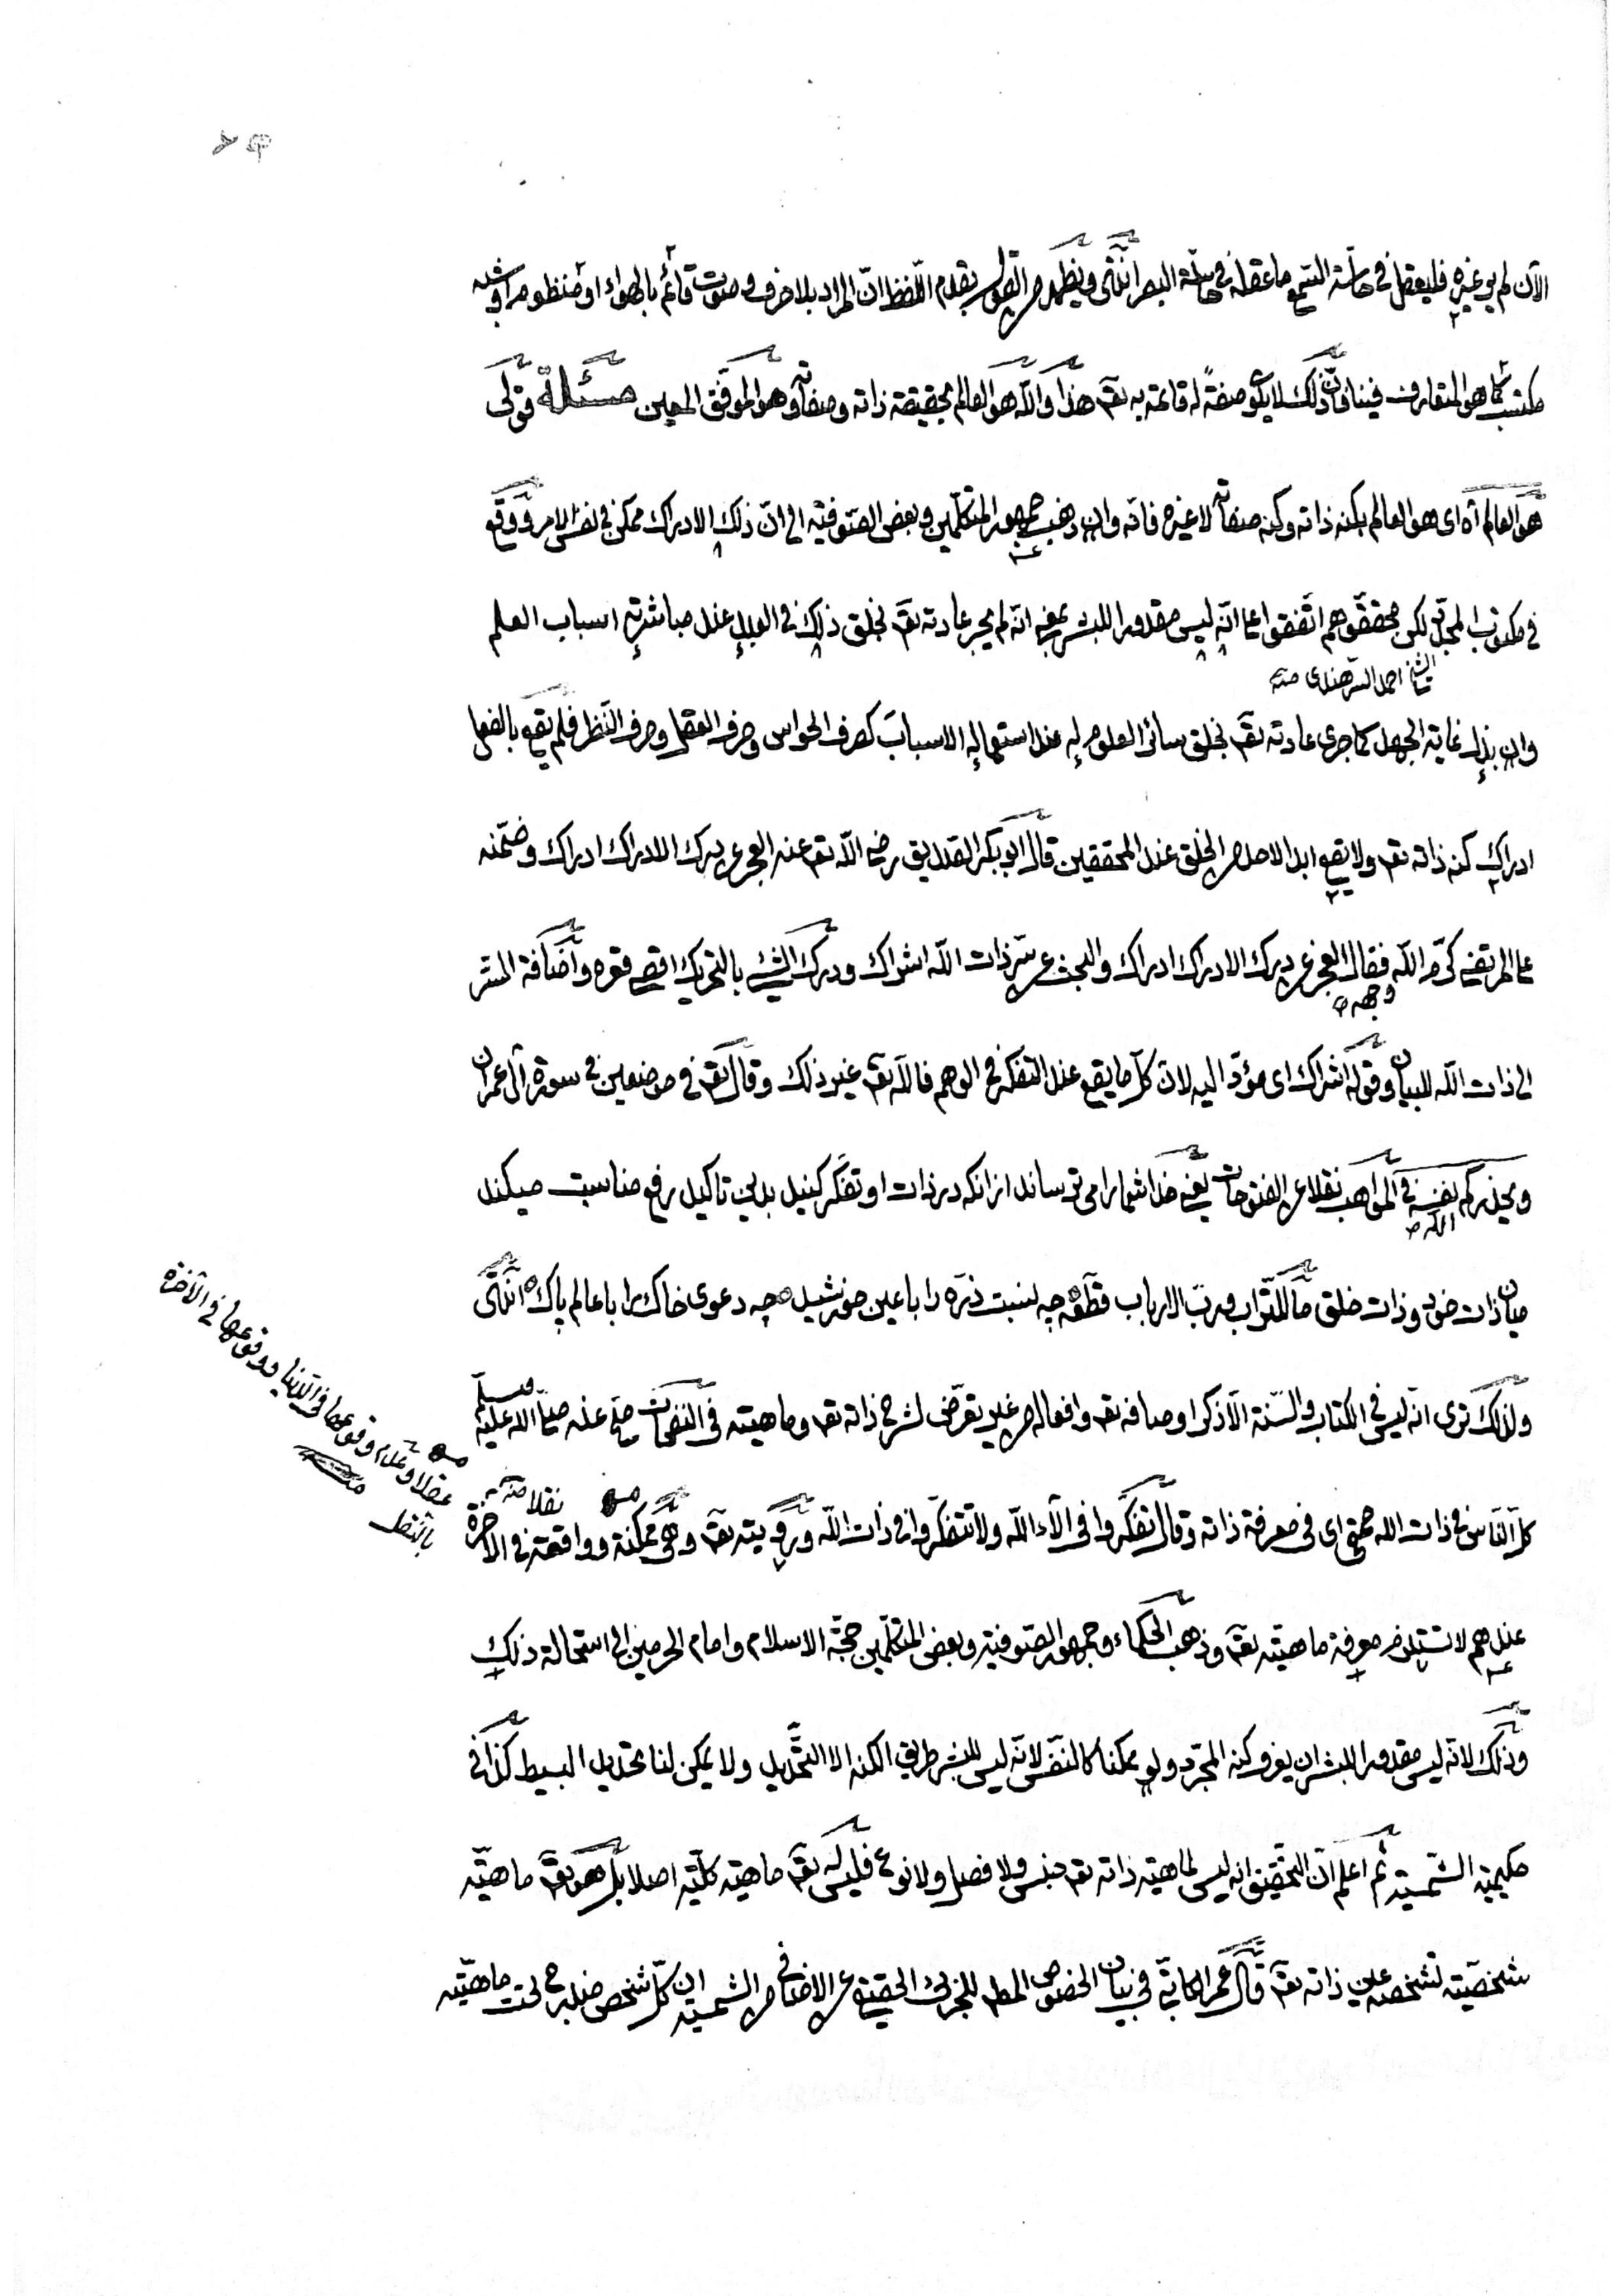 الآن لم يو غيره فليعقل في حاسّة السّمع ما عقله في حاسّة البصر انتهى ويظهر من القول بقدم اللّفظ انّ المراد بلا حرف وصوت قائم بالهواء او منظوم مرئى
مكتسب كما هو المتعارف فينا فانّ ذلك لا يكون صفةً له قائمة به تعه هذا واللّه هو العالم بحقيقة ذاته وصفاته وهو الموفّق المعين مسئلة قولى
هو العالم آه اى هو العالم بكنه ذاته وكنه صفاته لا غيره فانّه وان ذهب جمهور المتكلّمين وبعض الصّوفيّة الى انّ ذلك الادراك ممكن في نفس الامر ووقع
في مكتوب المجدّد لكن محقّقوهم اتّفقوا على انّه ليس مقدورا للبشر بمعنى انّه لم يجر عادته تعه بخلق ذلك في العبد عند مباشرته اسباب العلم
الشيخ احمد السّرهندى منه
وان بذل غاية الجهد كما جرى عادته تعه بخلق سائر العلوم له عند استعماله الاسباب كصرف الحواس وصرف العقل وصرف النّظر فلم يقع بالفعل
ادراك كنه ذاته تعه ولا يقع ابدا لاحد من الخلق عند المحققين قال ابو بكر الصّديق رضى اللّه تعه عنه العجز عن درك الادراك ادراك وضمّنه
على المرتضى كرّم اللّه وجهه فقال العجز عن درك الادراك ادراك والبحث عن سرّ ذات اللّه اشراك ودرك الشّئ بالتّحريك اقصى قعره واضافة السّر
الى ذات اللّه للبيان وقوله اشراك اى مؤدّ اليه لانّ كلّ ما يقع عند التّفكّر في الوهم فاللّه تعه غير ذلك وقال تعه في موضعين في سورة آل عمران
ويحذّركم اللّه نفسه في المواهب نقلا عن الفتوحات يعنى خدا شمارا مى ترساند از انكه در ذات او تفكّر كنيد بدين تاكيد رفع مناسبت ميكند
ميان ذات خود وذات خلق ما للتّراب وربّ الارباب قطعه چه نسبت ذرّه را با عين خورشيد چه دعوى خاك را با عالم پاك انتهى
ولذلك ترى انّه ليس في الكتاب والسّنة الّا ذكر اوصافه تعه وافعاله من غير تعرّض لشرح ذاته تعه وماهيته في النفحات صحّ عنه صلّى الله عليه وسلّم
كلّ النّاس في ذات الله حمقى اى في معرفة ذاته وقال تفكّروا في آلاء اللّه ولا تتفكّروا في ذات اللّه ورؤيته تعه وهى ممكنة عقلا وواقعة في الآخرة نقلا منه
عندهم لا تستلزم معرفة ماهيّته تعه وذهب الحكماء وجمهور الصّوفيّة وبعض المتكلّمين حجّة الاسلام وامام الحرمين الى استحالة ذلك
وذلك لانّه ليس مقدورا للبشر ان يعرف كنه المجرّد ولو ممكنا كالنّفس لانّه ليس للبشر طريق الكنه الا التّحديد ولا يمكن لنا تحديد البسيط كذا في
حكيمية الشّمسيّة ثم اعلم انّ التّحقيق انه ليس لماهيّة ذاته تعه جنس ولا فصل ولا نوع فليس له تعه ماهيّة كلّيّة اصلا بل هو تعه ماهيّة
شخصيّة تشخّصه عين ذاته تعه قال في بيان الخصوص المطلق للجزئى الحقيقى عن الاضافى من الشّمسيّة ان كلّ شخص مندرج تحت ماهيّته
عقلا وعدم وقوعها في الدّنيا ووقوعها في الآخرة
بالنّقل منه